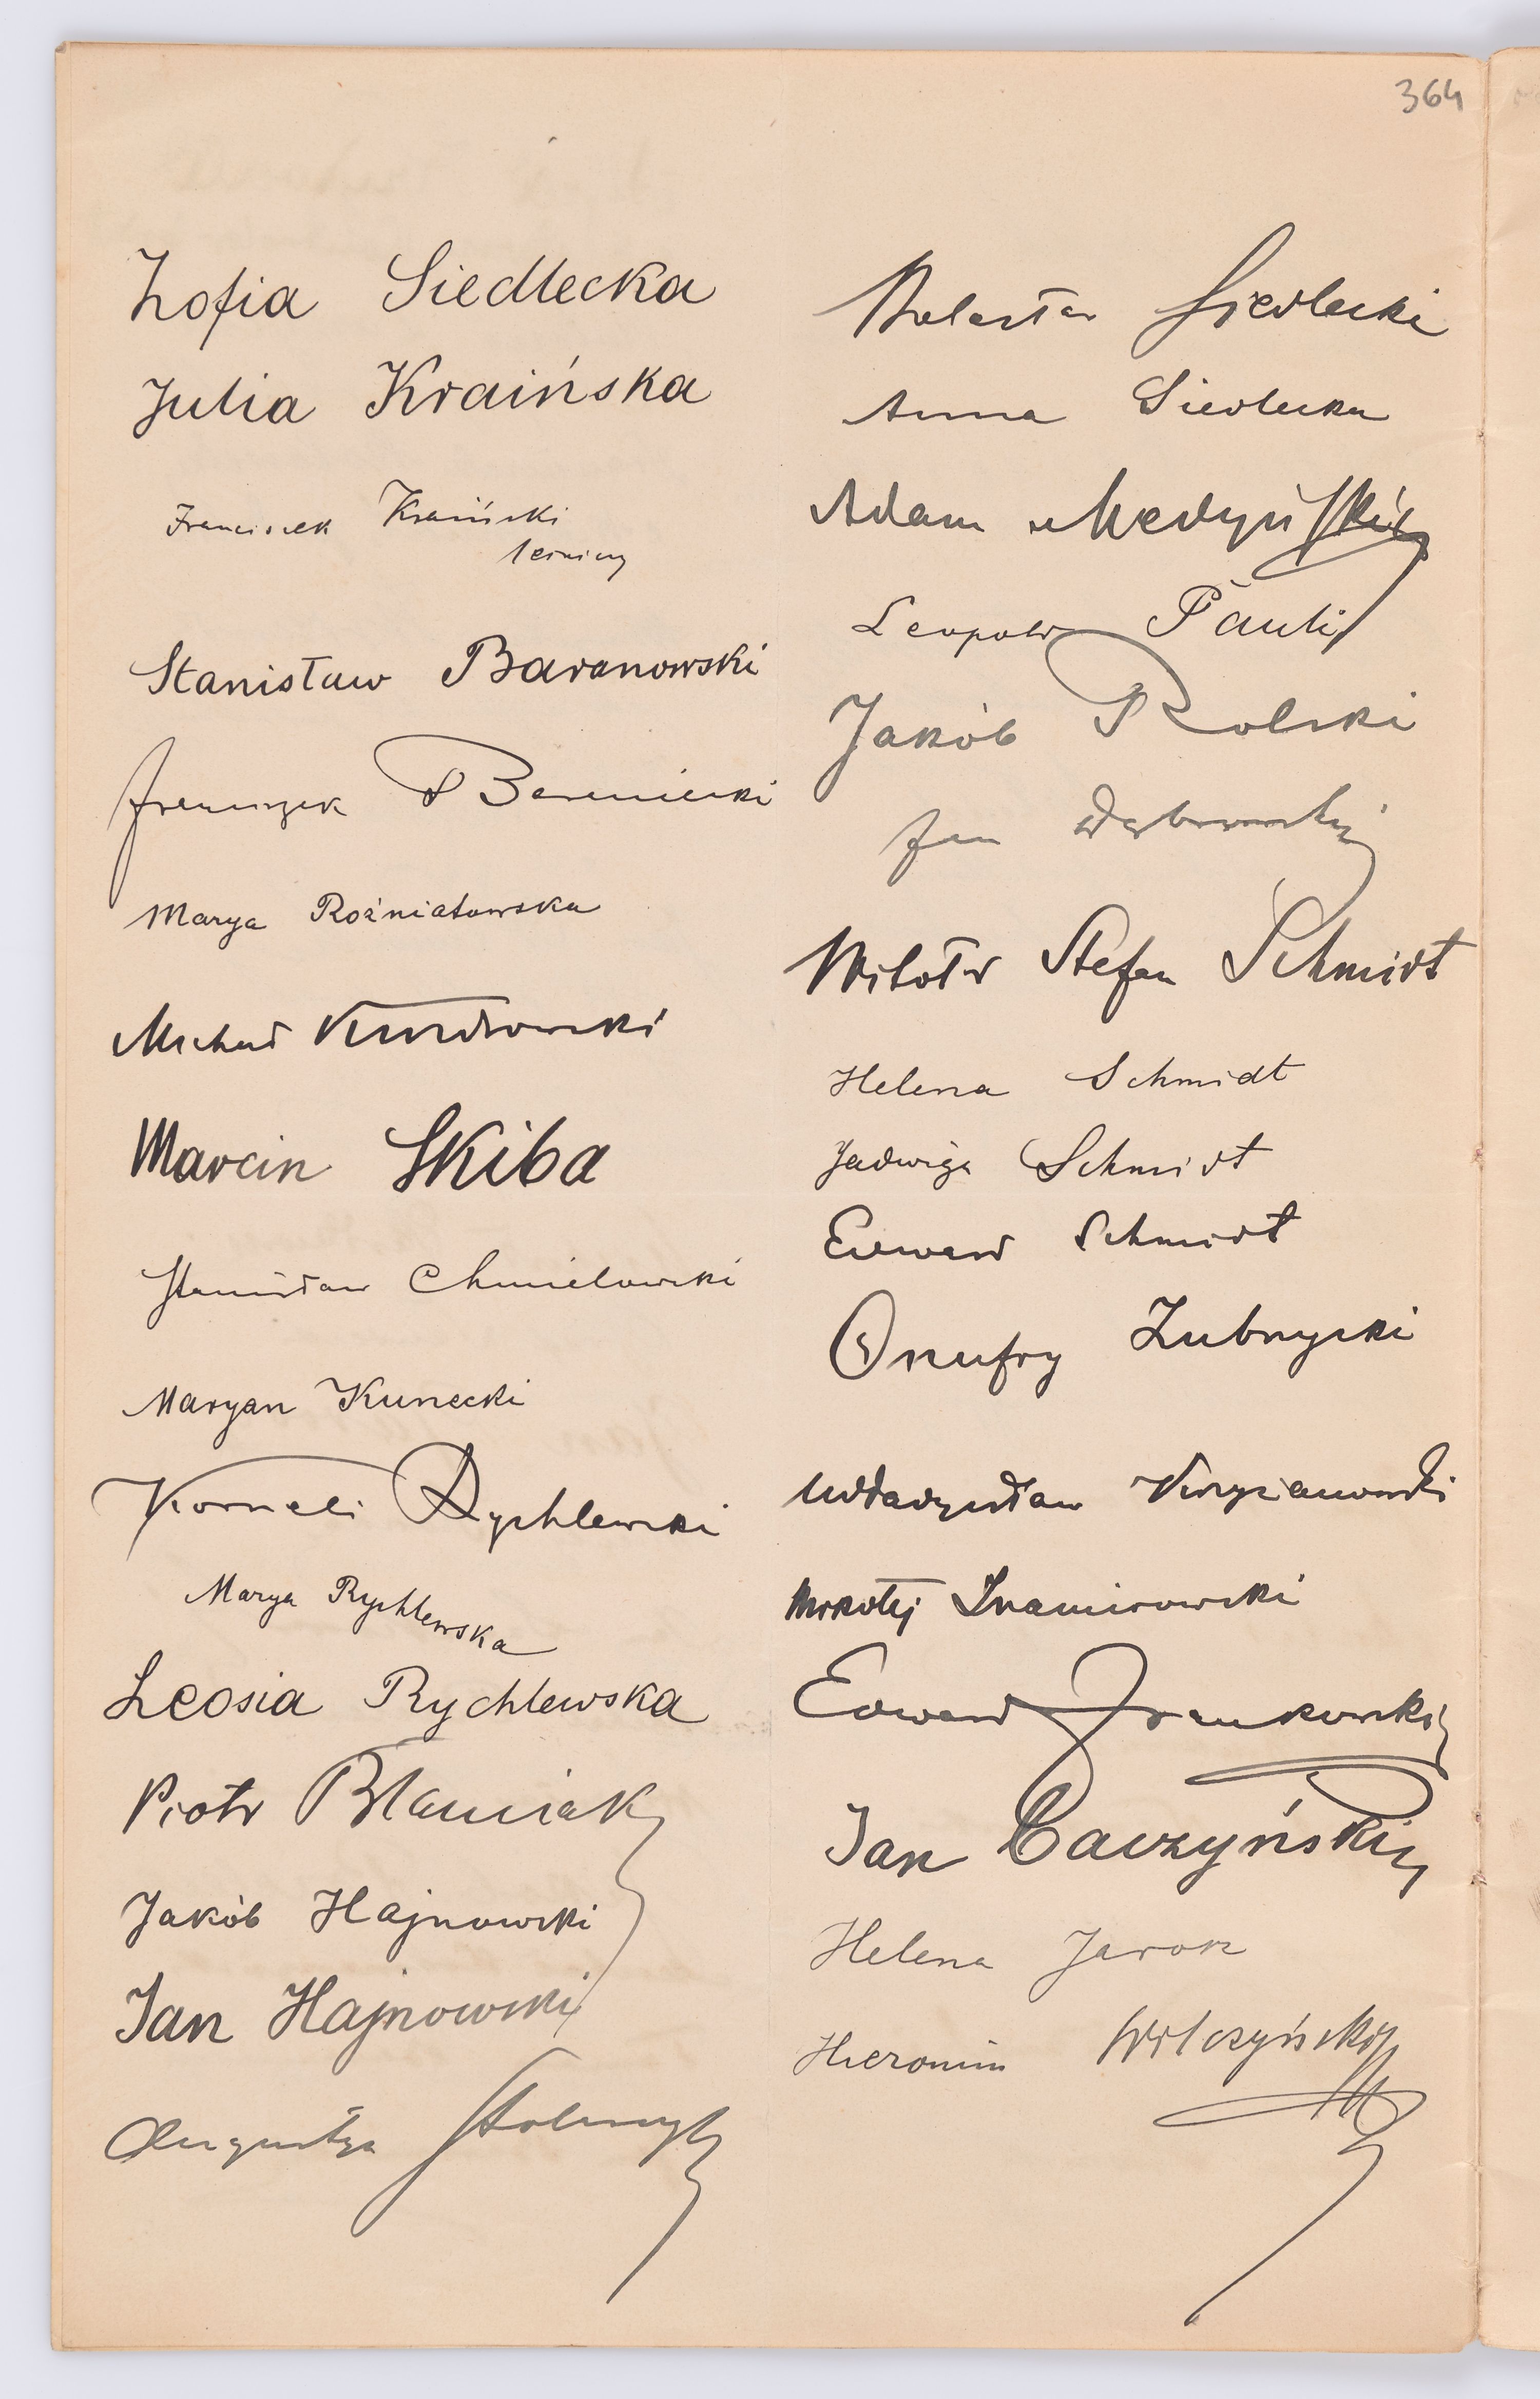 364
Zofia Siedlecka
Julia Kraińska
Franciszek Kraiński
leśniczy
Stanisław Baranowski
Franciszek
Marya Rożniatowska
Michał
Marcin Skiba
Stanisław Chmielowski
Maryan Kunecki
Korneli Rychlewski
Marya Rychlewska
Leosia Rychlewska
Piotr Blaniak
Jakób Hajnowski
Jan Hajnowski
Augustya
Bolesław Siedlecki
Anna Siedlecka
Adam Medyński
Leopold Pauli
Jakób Rolski
Jan Dąbrowski
Witołd Stefan Schmidt
Helena Schmidt
Jadwiga Schmidt
Edward Schmidt
Onufry Zubrzycki
Władzysław
Mikołaj
Edward Frankowski
Jan Caczyński
Helena Jarosz
Hieronim Wilczyński